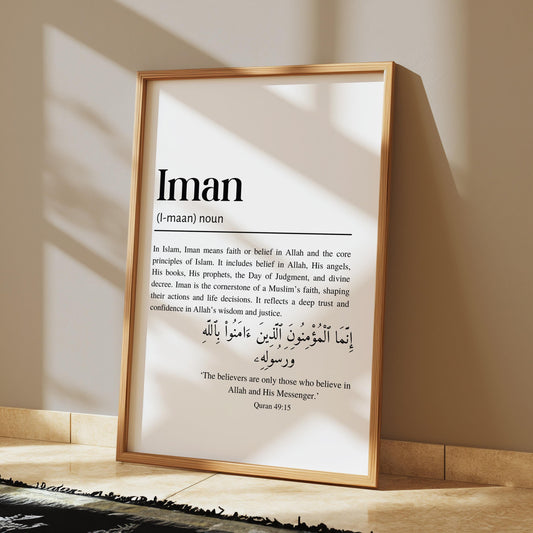 Iman
(I-maan) noun
In Islam, Iman means faith or belief in Allah and the core
principles of Islam. It includes belief in Allah, His angels,
His books, His prophets, the Day of Judgment, and divine
decree. Iman is the cornerstone of a Muslim's faith, shaping
their actions and life decisions. It reflects a deep trust and
confidence in Allah's wisdom and justice.
إِنَّمَا ٱلْمُؤْمِنُونَ ٱلَّذِينَ ءَامَنُوا۟ بِٱللَّهِ
وَرَسُولِهِۦ
'The believers are only those who believe in
Allah and His Messenger.'
Quran 49:15